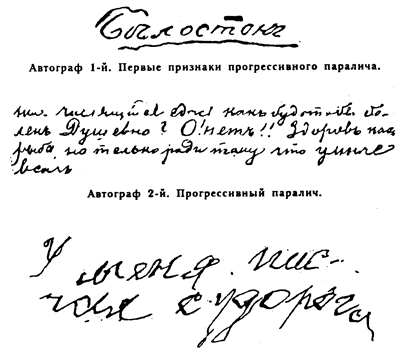 Автограф 1-й. Первые признаки прогрессивного паралича.
числящийся какъ будто бо-
лень Душевно? О нетъ!! Здоровъ как
рыба но только ради таму что умнее
всехъ
Автограф 2-й. Прогрессивный паралич.
У меня пис-
чая судорога